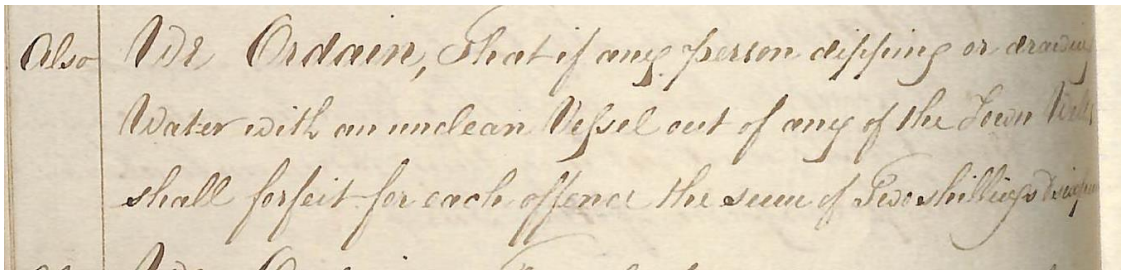 Also We Ordain, That if any person dipping or drawing
Water with an unclean Veſsel out of any of the Town Wells
shall forfeit for each offence the sum of Two shillings & sixpence
We Ordain